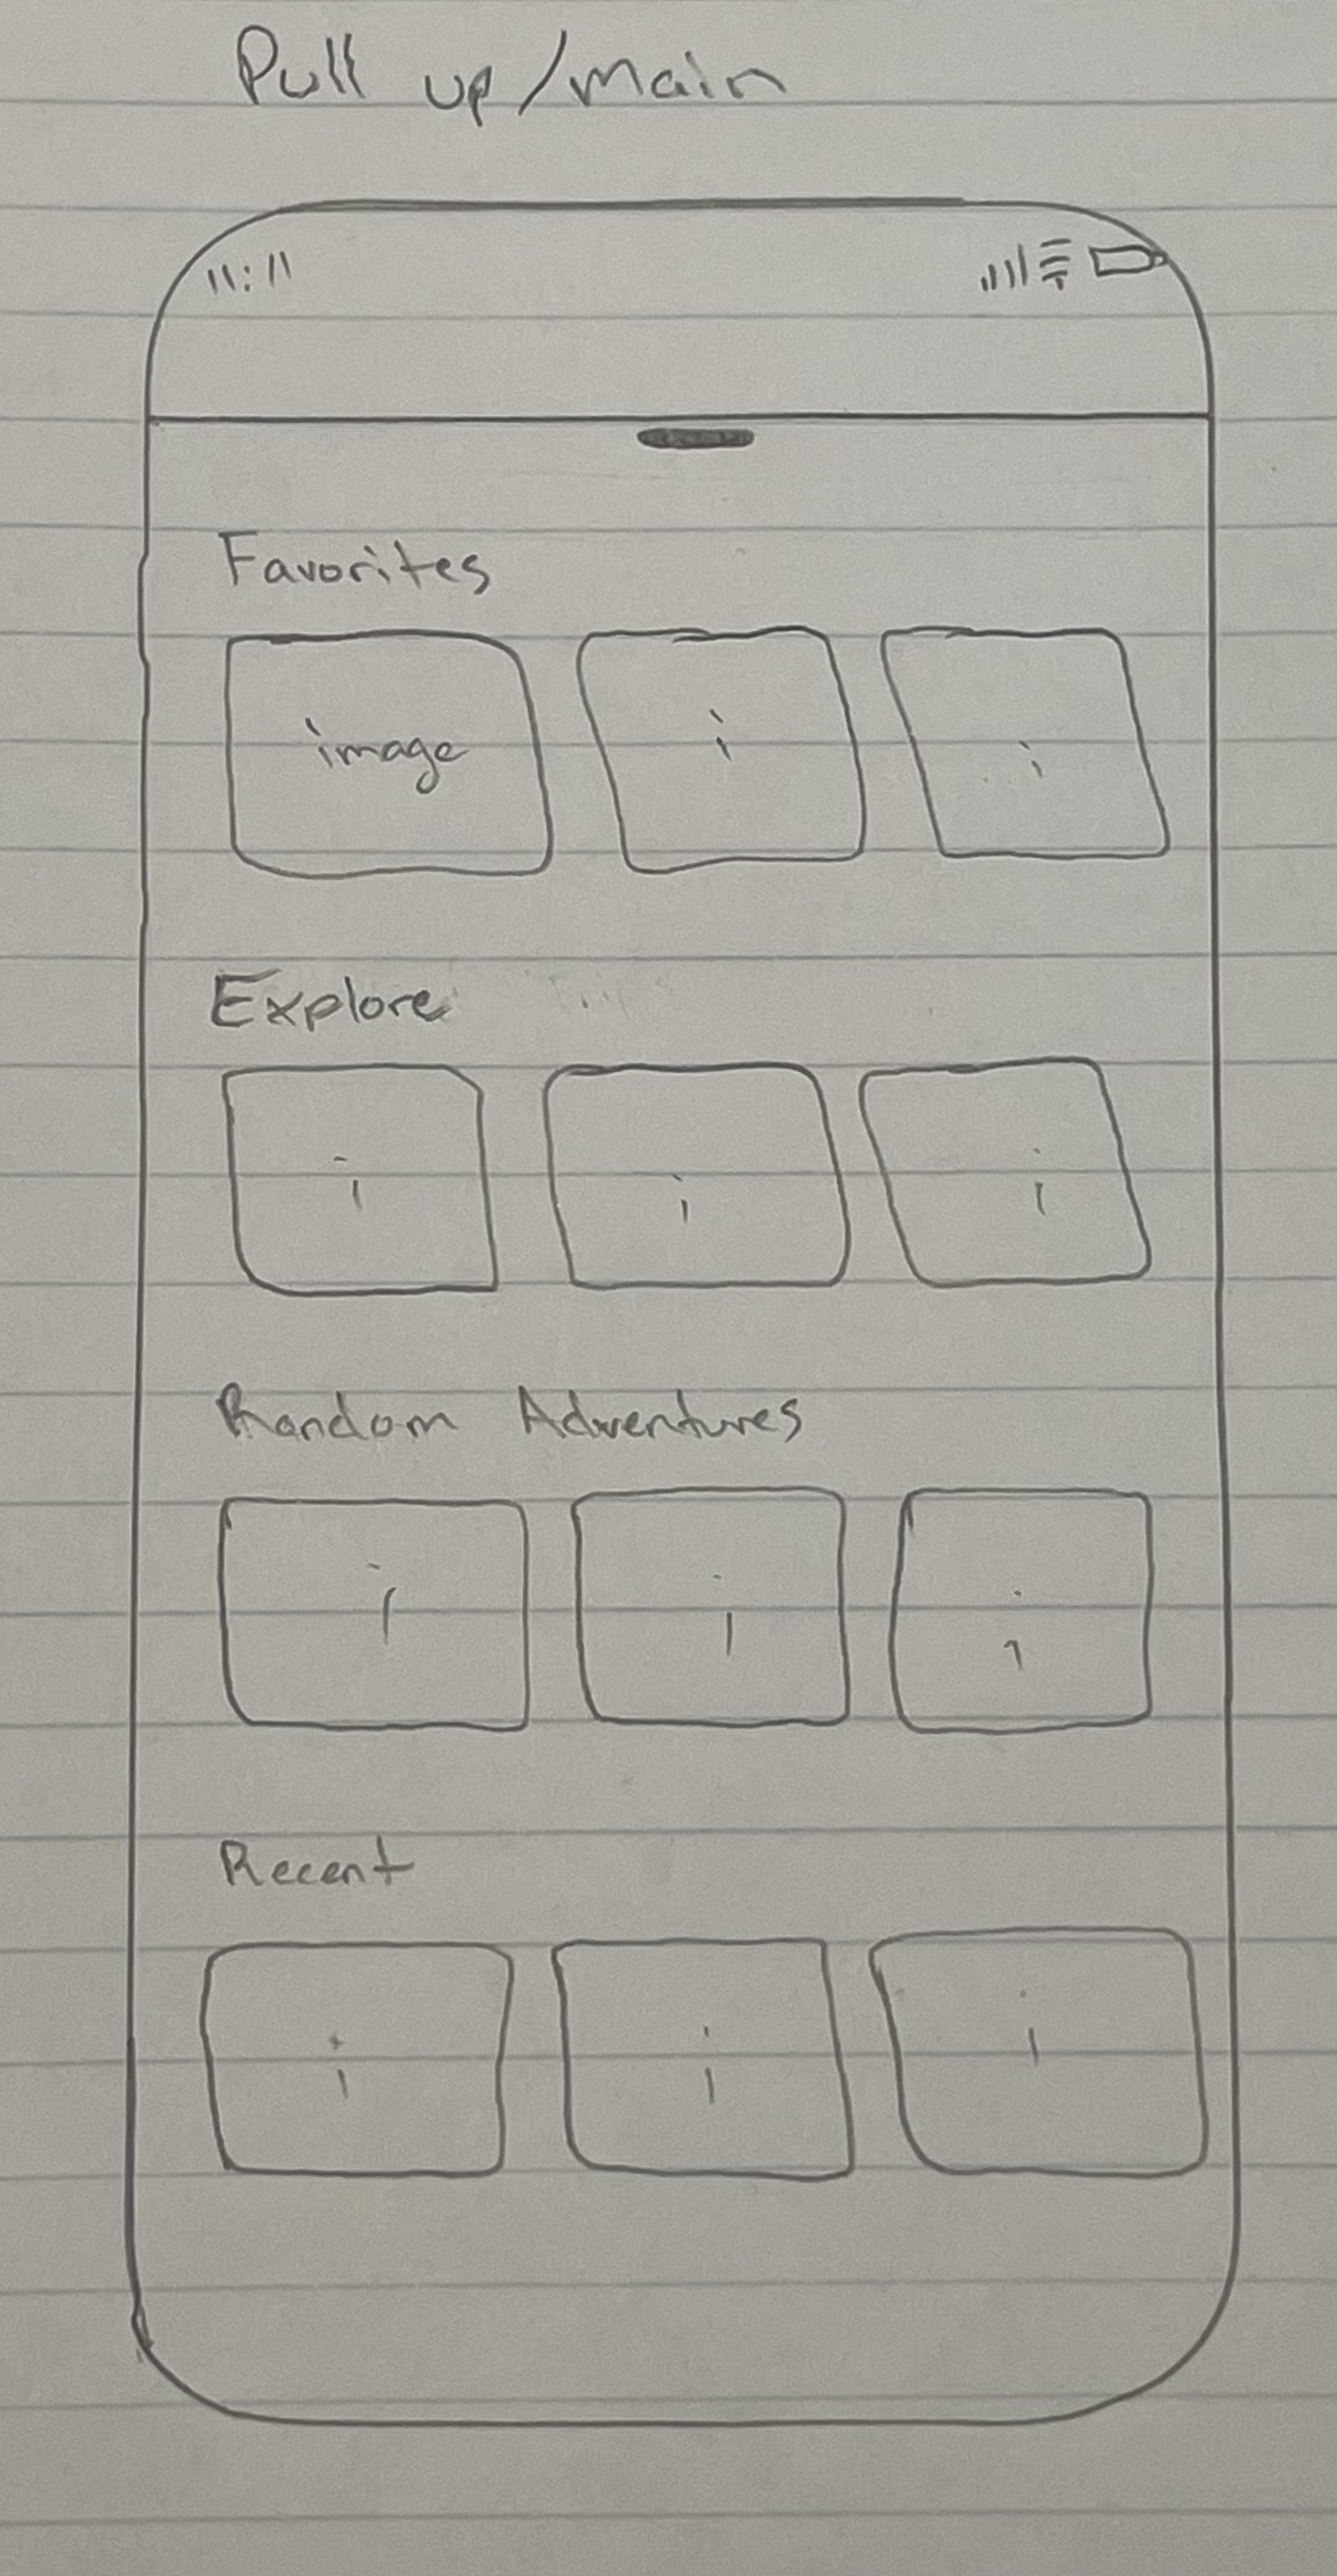 Pull up/main
11:11
Favorites
image i i
Explore
i i i
Random Adventures
i i i
Recent
i i i